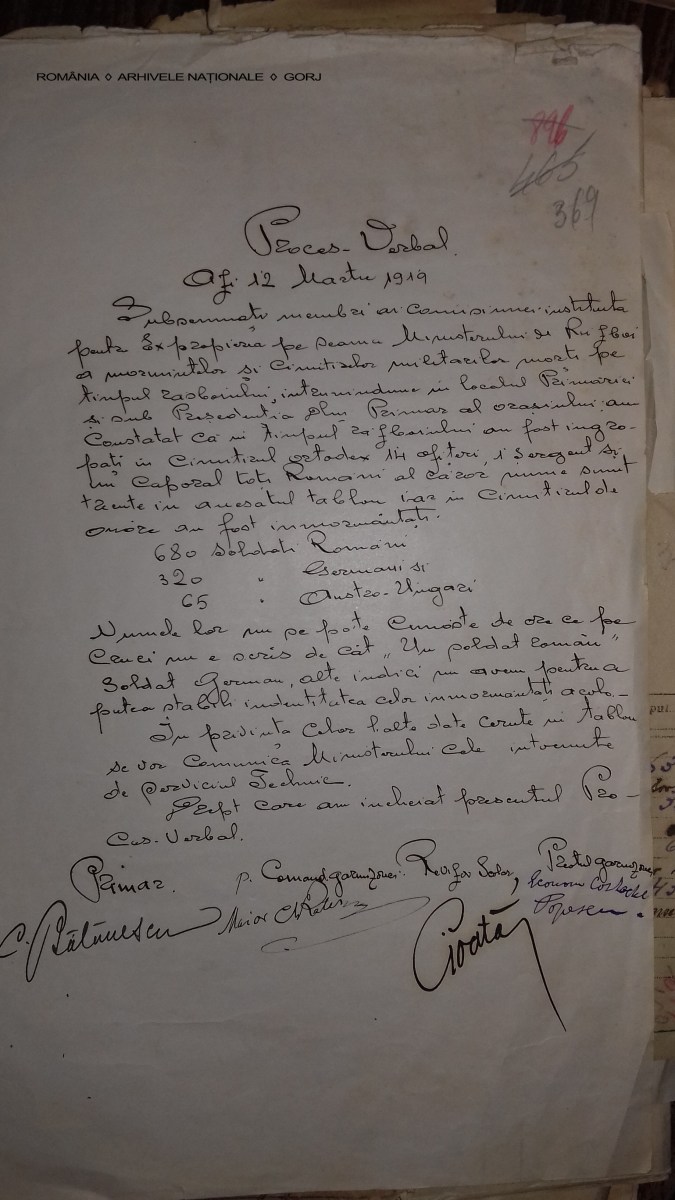 ROMÂNIA ◊ ARHIVELE NAȚIONALE ◊ GORJ
896
465
369
Proces-Verbal.
Azi 12 Martie 1919
Subsemnați membri ai Comisiunei instituita
pentr Expropierea pe seama Ministerului de Război
a mormintelor și Cimitirelor militarilor morți pe
timpul razboiului, intrunindune in localul Primăriei
și sub Președentia Dlui Primar al orașului, am
Constatat că in timpul războiului au fost ingro-
pați in Cimitirul ortodox 14 ofițeri, 1 sergent și
un Caporal toți Romani al căror nume sunt
trecute in anexatul tablou iar in Cimitirul de
onoare au fost inmormântați.
680 Soldati Români
320 " Germani si
65 " Austro-Ungari
Numele lor nu se pote Cunoște de ore ce pe
Cruci nu e scris de cât „Un soldat român"
Soldat German, alte indici nu avem pentru a
putea stabili indentitatea celor inmormântați acolo.
In privința Celor l'alte date cerute in tablou
se vor Comunica Ministerului cele intocmite
de Serviciul Technic.
Drept care am incheiat presentul Pro-
Ces-Verbal.
Primar. p. Comand. garnizonei. Revizor Solar, Protol garnizonei
C. Bălănescu Maior Econom
Cioată Popescu